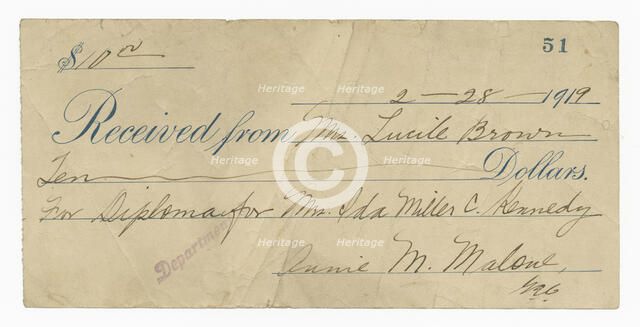 $10.00 51
2-28-1919
Received from Mrs. Lucile Brown
Ten Dollars.
For Diploma for Mrs. Ida Miller C. Kennedy
Department
Annie M. Malone,
Heritage
Heritage
Heritage
Heritage
Heritage
Heritage
Heritage
Heritage
C